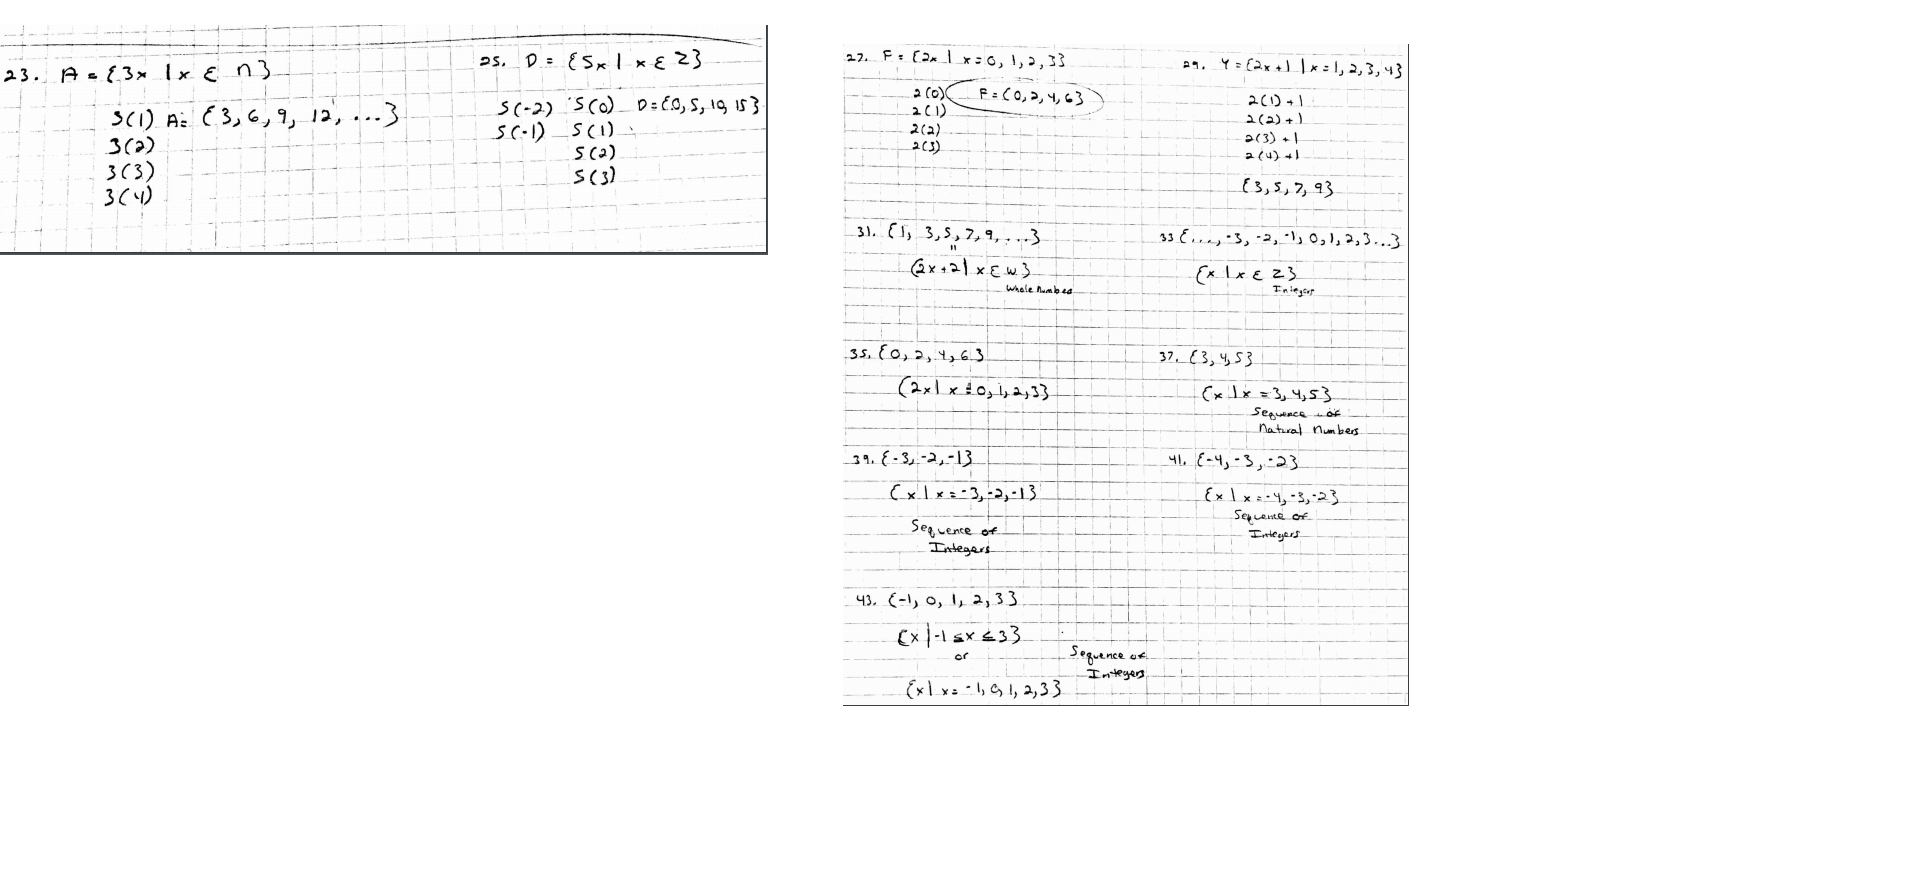 23. A = {3x | x ε n}
3(1) A = {3, 6, 9, 12, ...}
3(2)
3(3)
3(4)
25. D = {5x | x ε Z}
5(-2) 5(0) D = {0, 5, 10, 15}
5(-1) 5(1)
5(2)
5(3)
27. F = {2x | x = 0, 1, 2, 3}
2(0) F = {0, 2, 4, 6}
2(1)
2(2)
2(3)
29. Y = {2x+1 | x = 1, 2, 3, 4}
2(1) + 1
2(2) + 1
2(3) + 1
2(4) + 1
{3, 5, 7, 9}
31. {1, 3, 5, 7, 9, ...}
"
{2x+2 | x ε W}
Whole Number
33 {..., -3, -2, -1, 0, 1, 2, 3...}
{x | x ε Z}
Integer
35. {0, 2, 4, 6}
{2x | x = 0, 1, 2, 3}
37. {3, 4, 5}
{x | x = 3, 4, 5}
Sequence of
Natural Numbers
39. {-3, -2, -1}
{x | x = -3, -2, -1}
Sequence of
Integers
41. {-4, -3, -2}
{x | x = -4, -3, -2}
Sequence of
Integers
43. {-1, 0, 1, 2, 3}
{x | -1 ≤ x ≤ 3}
or
{x | x = -1, 0, 1, 2, 3}
Sequence of
Integers